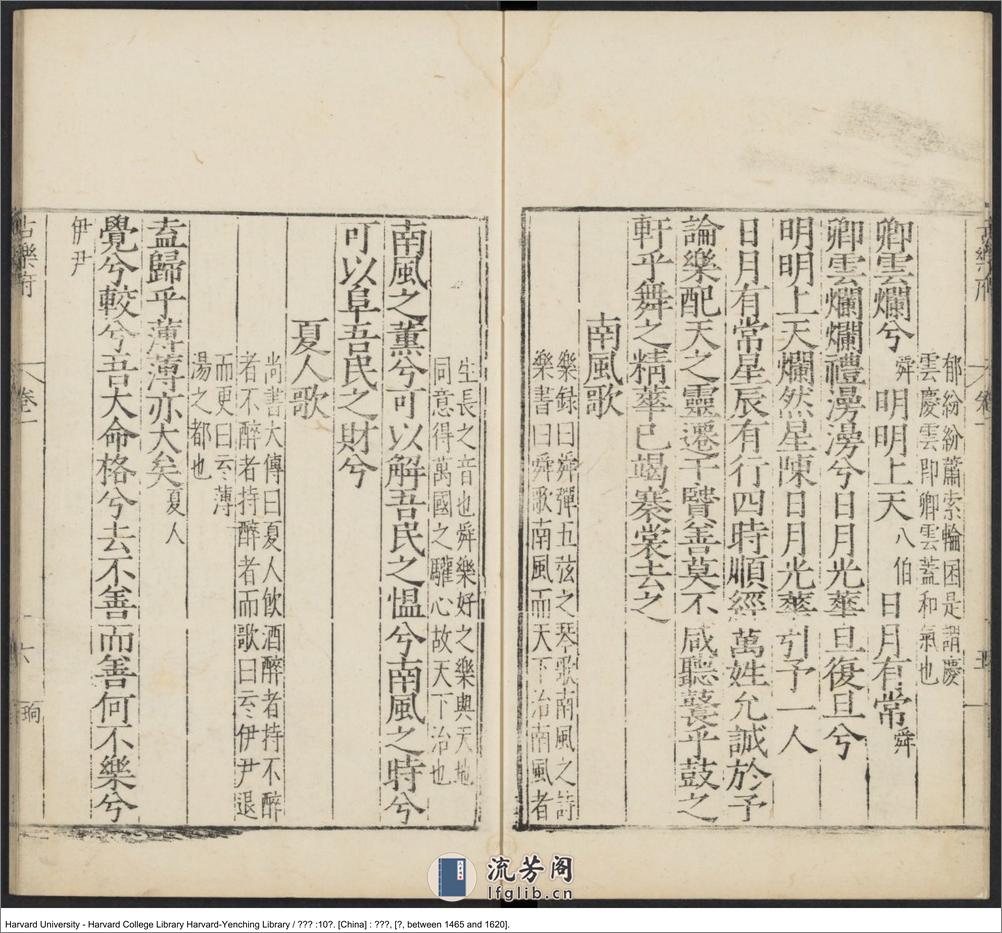 古樂府
卷一
五
郁紛紛蕭索輪囷是謂慶
雲慶雲即卿雲蓋和氣也
卿雲爛兮舜明明上天八伯日月有常舜
卿雲爛爛禮漫漫兮日月光華旦復旦兮
明明上天爛然星陳日月光華引予一人
日月有常星辰有行四時順經萬姓允誠於予
論樂配天之靈遷于賢善莫不咸聽鼚乎鼓之
軒乎舞之精華已竭褰裳去之
南風歌
樂録曰舜彈五弦之琴歌南風之詩
樂書曰舜歌南風而天下治南風者
生長之音也舜樂好之樂與天地
同意得萬國之驩心故天下治也
南風之薰兮可以解吾民之慍兮南風之時兮
可以阜吾民之財兮
夏人歌
尚書大傳曰夏人飲酒醉者持不醉
者不醉者持醉者而歌曰云云伊尹退
而更曰云云薄
湯之都也
盍歸乎薄薄亦大矣夏人
覺兮較兮吾大命格兮去不善而善何不樂兮
伊尹
古樂府
卷一
六
珦
流芳阁
lfglib.cn
Harvard University - Harvard College Library Harvard-Yenching Library / ??? :10?. [China] : ???, [?, between 1465 and 1620].